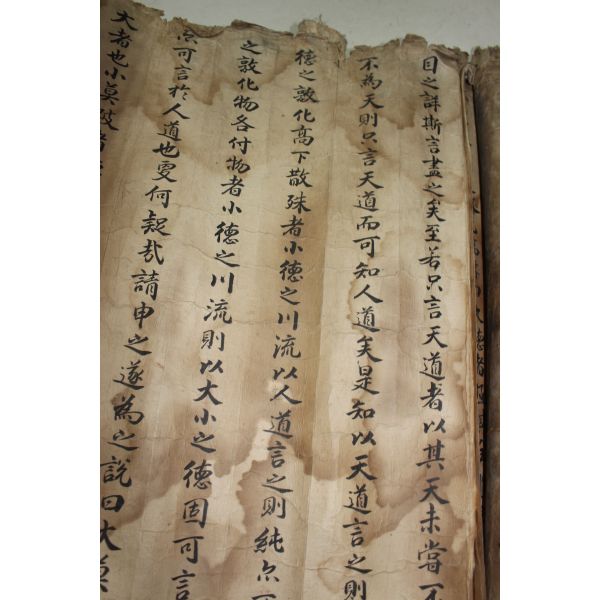 目之詳斯言盡之矣至若只言天道者以其天未嘗不
不為天則只言天道而可知人道矣是知以天道言之則
德之敦化高下散殊者小德之川流以人道言之則純亦
之敦化物各付物者小德之川流則以大小之德固可言
亦可言於人道也夏何疑哉請申之遂為之說曰大莫
大者也小莫